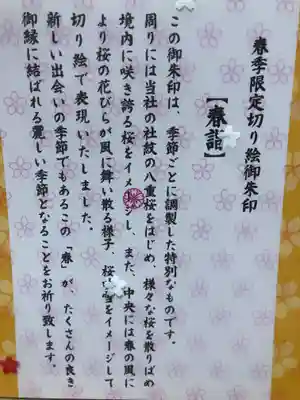 春季限定切り絵御朱印
【春詣】
この御朱印は、季節ごとに調製した特別なものです。
周りには当社の社紋の八重桜をはじめ、様々な桜を散りばめ
境内に咲き誇る桜をイメージし、また、中央には春の風に
より桜の花びらが風に舞い散る様子、桜吹雪をイメージして
切り絵で表現いたしました。
新しい出会いの季節でもあるこの「春」が、たくさんの良き
御縁に結ばれる麗しい季節となることをお祈り致します。